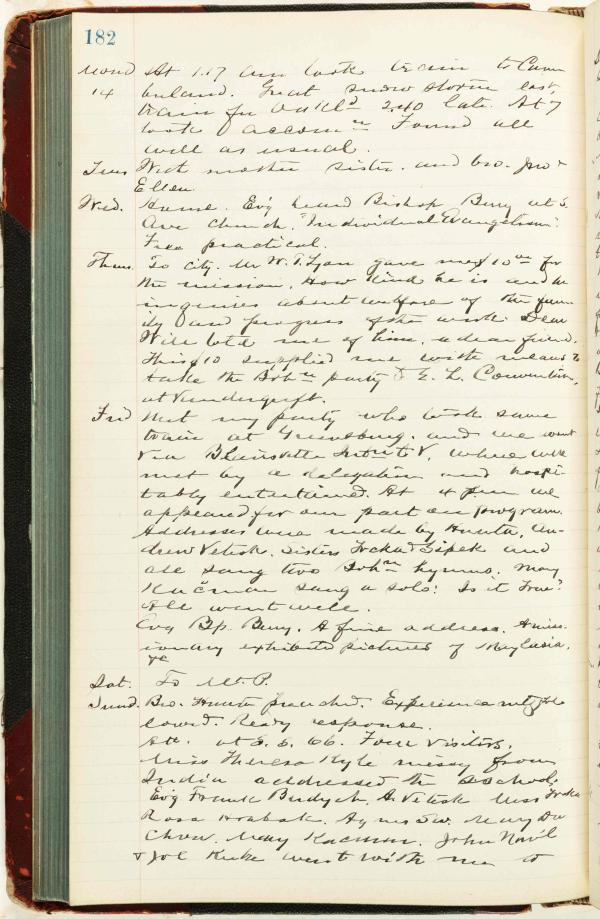 182
Mond At 1.17 am took train to Cum
14 berland. Great snow storm east,
train fr 2.40 late. At 7
took accomn Found all
well as usual.
Tues With mother sister and bro. Jno &
Ellen
Wed. Home. Ev'g heard Bishop Berry at S.
Ave Church. "Individual Evangelism".
practical.
Thurs. To city. Mr W. T. Lyon gave me $10 00 for
the mission. How kind he is and he
inquires about welfare of the fam
ily and progress of the work. Dear
Will told me of him, a dear friend.
This $10 supplied me with means to
take the Bohn party to E. L. Convention,
at Vandergrift.
Frid Met my party who took same
train at Greensburg. and we went
via Blairsville to V, where we
met by a delegation and hospi-
tably entertained. At 4 pm we
appeared for our part on program.
Addresses were made by Hunta, An-
drew Vetisk. Sisters Focka & Sipek and
all sang two Bohn hymns. Mary
Kačman sang a solo: Is it True?
All went well.
Evg Bp. Berry. A fine address. A miss
ionary exhibited pictures of Maylasia.
&c
Sat. To Mt. P.
Sund. Bro. Hunta preached. Experience mtg fol
lowed. Ready response.
Att. at S. S. 66. Four visitors.
Miss Theresa Kyle missy from
India addressed the school.
Ev'g Frank Budych. A Vetisk Miss Focka
Rosa Hrabak. Agnes Mary Du
Chon. Mary Kacman. John Nov'l
& Joe Kuke went with me to